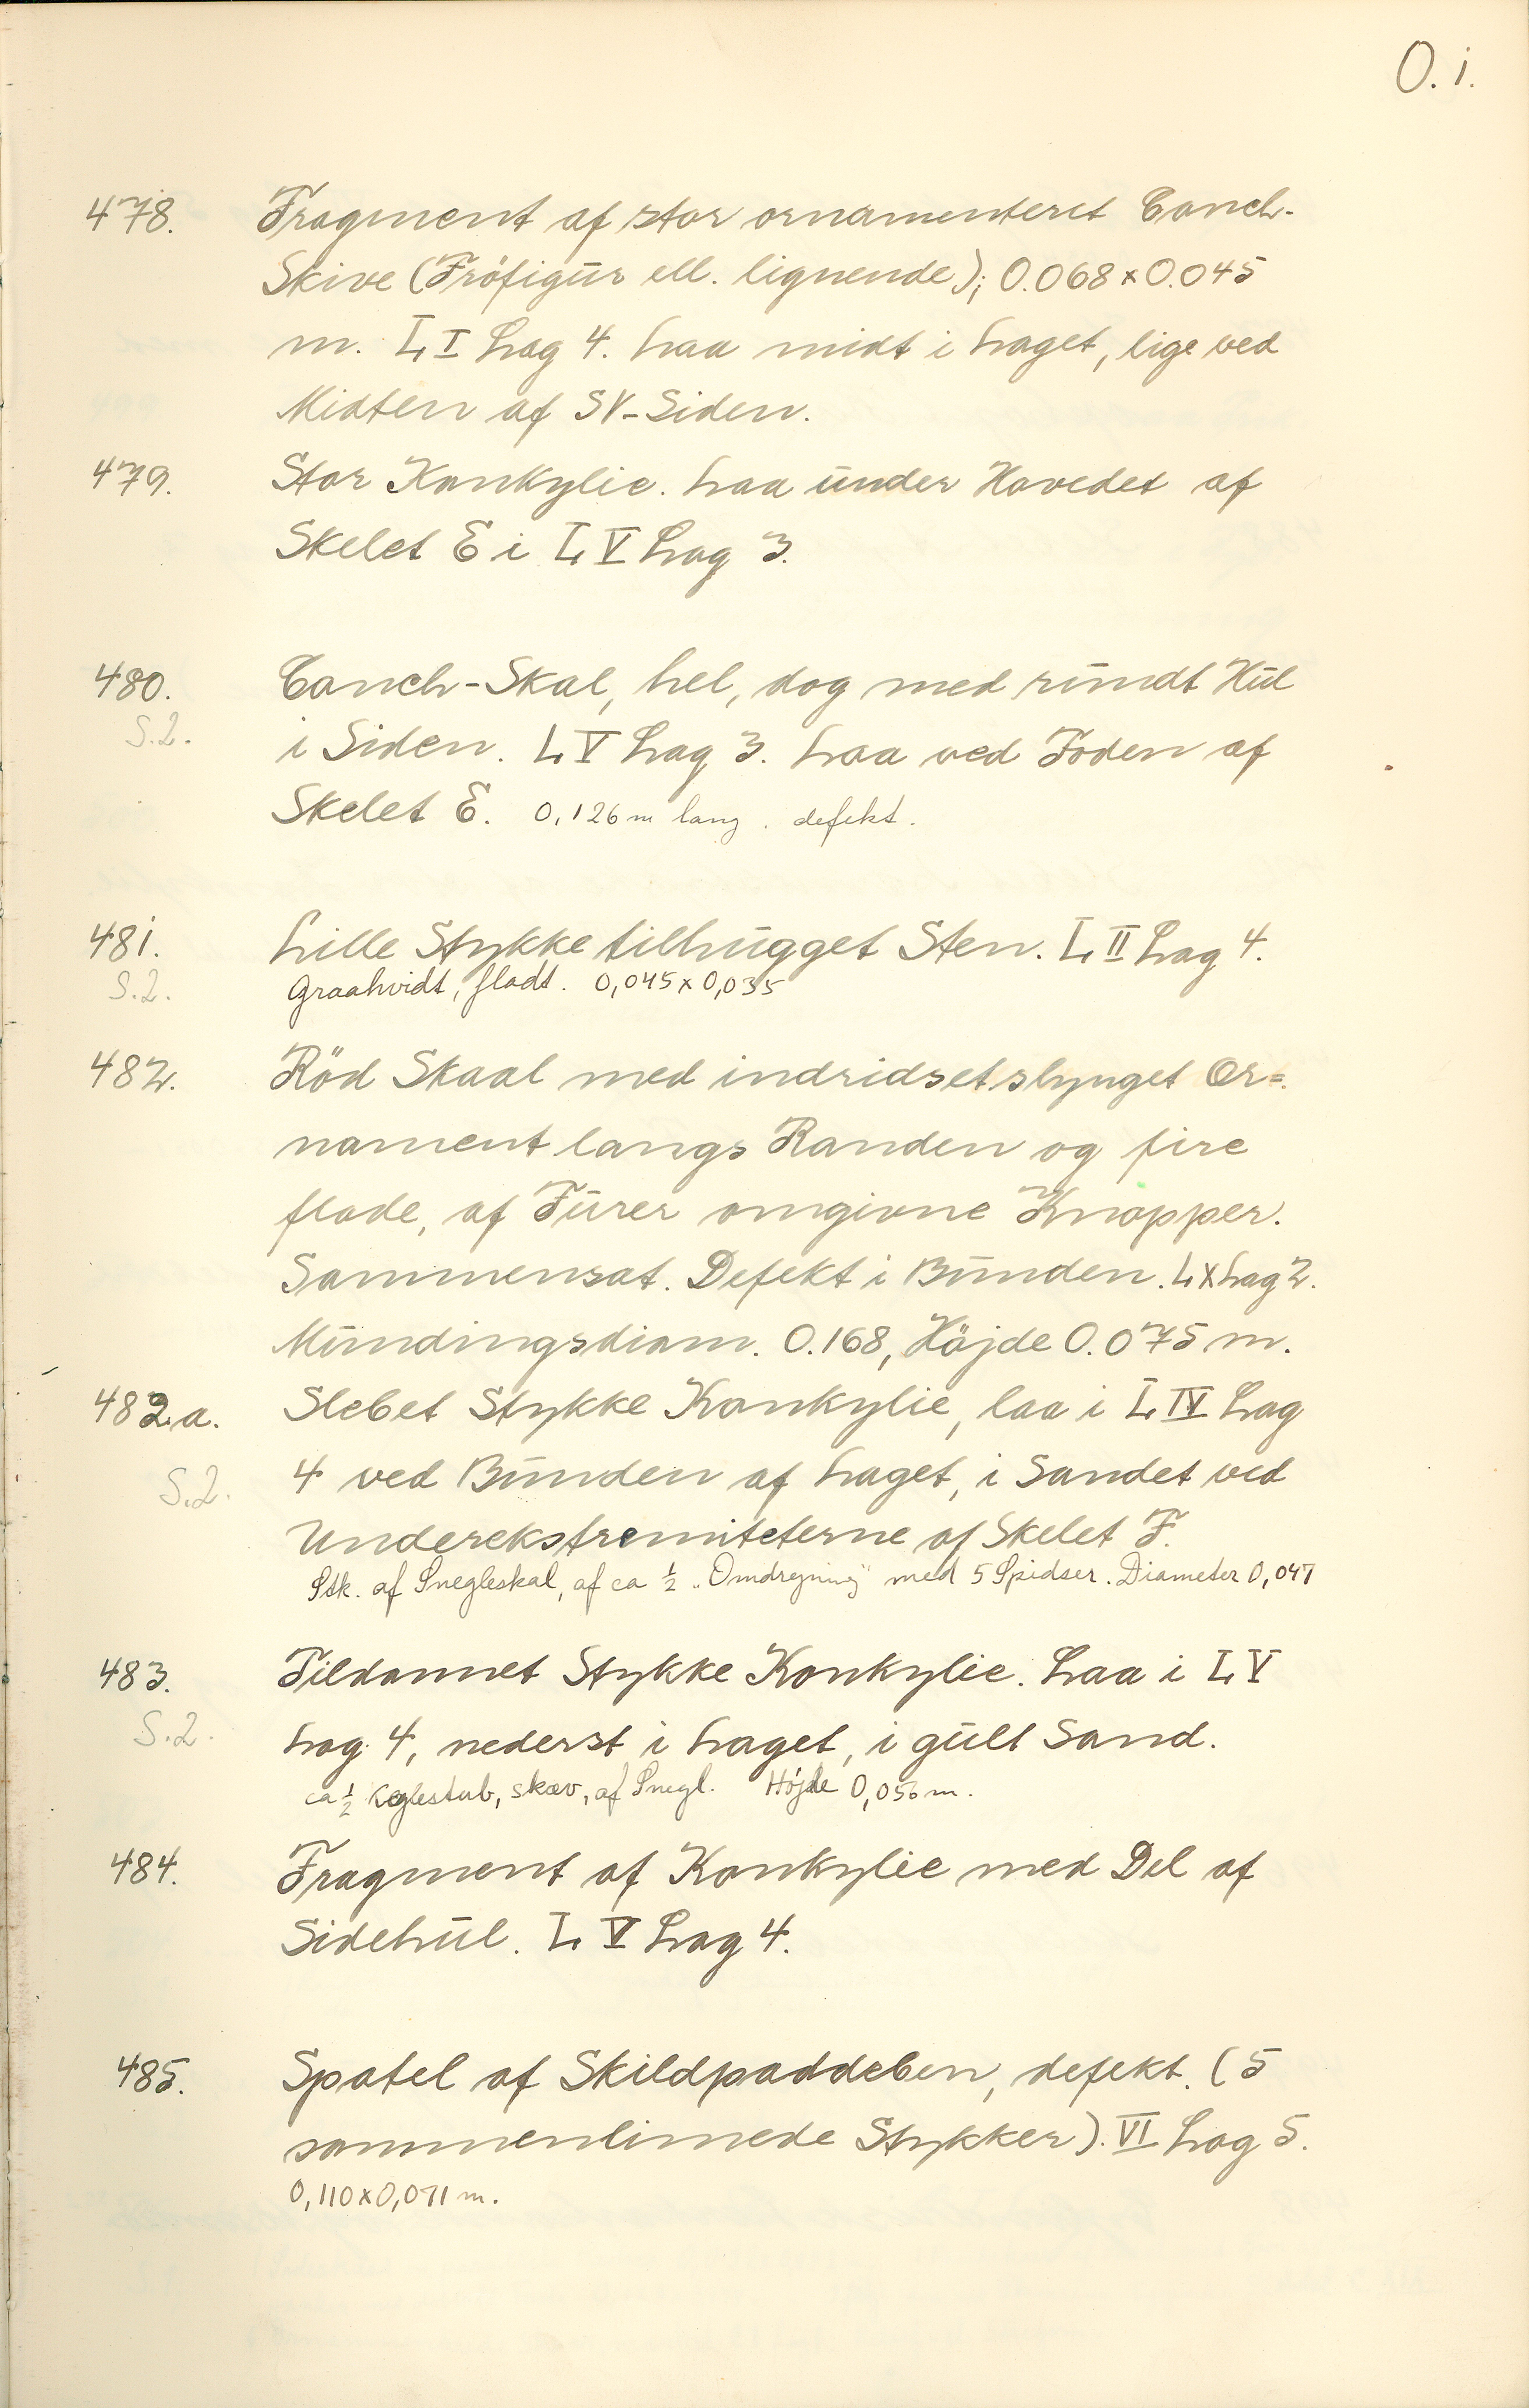 O. i.
478. Fragment af stor ornamenteret Conch-
Skive (Fröfigur ell. lignende); 0.068 x 0.045
m. L I Lag 4. Laa midt i Laget, lige ved
Midten af SV-Siden.
479. Stor Konkylie. Laa under Hovedet af
Skelet E i L V Lag 3.
480. Conch-Skal, hel, dog med rundt Hul
S.2. i Siden. L V Lag 3. Laa ved Foden af
Skelet E. 0,126 m lang. defekt.
481. Lille Stykke tilhugget Sten. L II Lag 4.
S.2. Graahvidt, fladt. 0,045 x 0,035
482. Röd Skaal med indridset slynget Or=
nament langs Randen og fire
flade, af Furer omgivne Knopper.
Sammensat. Defekt i Bunden. L X Lag 2.
Mundingsdiam. 0.168, Höjde 0.075 m.
482.a. Slebet Stykke Konkylie, laa i L IV Lag
4 ved Bunden af Laget, i Sandet ved
S.2. Underekstremiteterne af Skelet F.
Stk. af Snegleskal, af ca ½ "Omdrejning" med 5 Spidser. Diameter 0,047
483. Tildannet Stykke Konkylie. Laa i L V
S.2. Lag 4, nederst i Laget, i gult Sand.
ca ½ Keglestub, skæv, af Snegl. Højde 0,056 m.
484. Fragment af Konkylie med Del af
Sidehul. L V Lag 4.
485. Spatel af Skildpaddeben, defekt. (5
sammenlimede Stykker). VI Lag 5.
0,110 x 0,071 m.